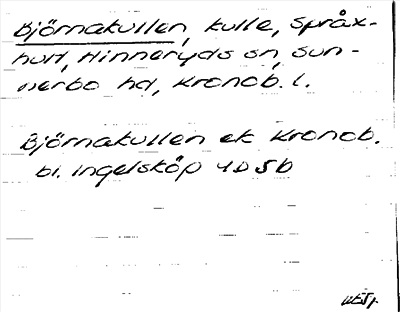 Björnakullen, kulle, Språx-
hult, Hinneryds sn, Sun-
nerbo hd, Kronob. l.
Björnakullen ek Kronob.
bl. Ingelsköp 4D5b